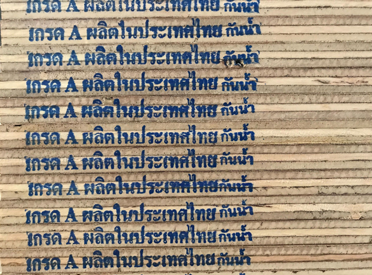 เกรด A ผลิตในประเทศไทย กันน้ำ
เกรด A ผลิตในประเทศไทย กันน้ำ
เกรด A ผลิตในประเทศไทย กันน้ำ
เกรด A ผลิตในประเทศไทย กันน้ำ
เกรด A ผลิตในประเทศไทย กันน้ำ
เกรด A ผลิตในประเทศไทย กันน้ำ
เกรด A ผลิตในประเทศไทย กันน้ำ
เกรด A ผลิตในประเทศไทย กันน้ำ
เกรด A ผลิตในประเทศไทย กันน้ำ
เกรด A ผลิตในประเทศไทย กันน้ำ
เกรด A ผลิตในประเทศไทย กันน้ำ